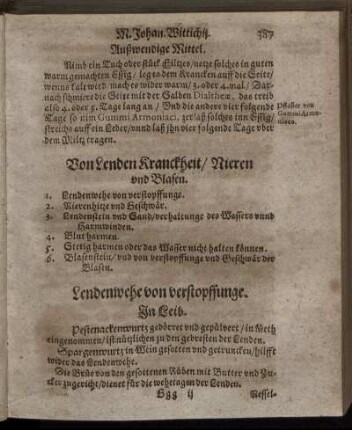 M. Johan. Wittichij. 387
Außwendige Mittel.
Nimb ein Tuch oder stück Filtzes/ netze solches in guten
warm gemachten Essig/ leg es dem Krancken auff die Seite/
wenns kalt werd/ mach es wider warm/ 3. oder 4. mal/ Dar-
nach schmiere die Seite mit der Salben Dialthea, das treib
also 4. oder 5. Tage lang an/ Vnd die andere vier folgende
Tage so nim Gummi Armoniaci, zerlaß solches inn Essig/
streichs auff ein Leder/ vnnd laß jhn vier folgende Tage vber
dem Miltz tragen.
Pflaster von
Gummi Armo-
niaco.
Von Lenden Kranckheit/ Nieren
vnd Blasen.
1. Lendenwehe von verstopffunge.
2. Nierenhitze vnd Geschwär.
3. Lendenstein vnd Sand/ verhaltunge des Wassers vnnd
Harmwinden.
4. Blut harmen.
5. Stetig harmen oder das Wasser nicht halten können.
6. Blasenstein/ vnd von verstopffunge vnd Geschwär der
Blasen.
Lendenwehe von verstopffunge.
In Leib.
Pestenackenwurtz gedörret vnd gepülvert/ in Meth
eingenommen/ ist nützlichen zu den gebresten der Lenden.
Spargenwurtz in Wein gesotten vnd getruncken/ hilfft
wider das Lendenwehe.
Die Brüe von den gesottenen Rüben mit Butter vnd Zu-
cker zugericht/ dienet für die wehetagen der Lenden.
Ggg ij Nessel-